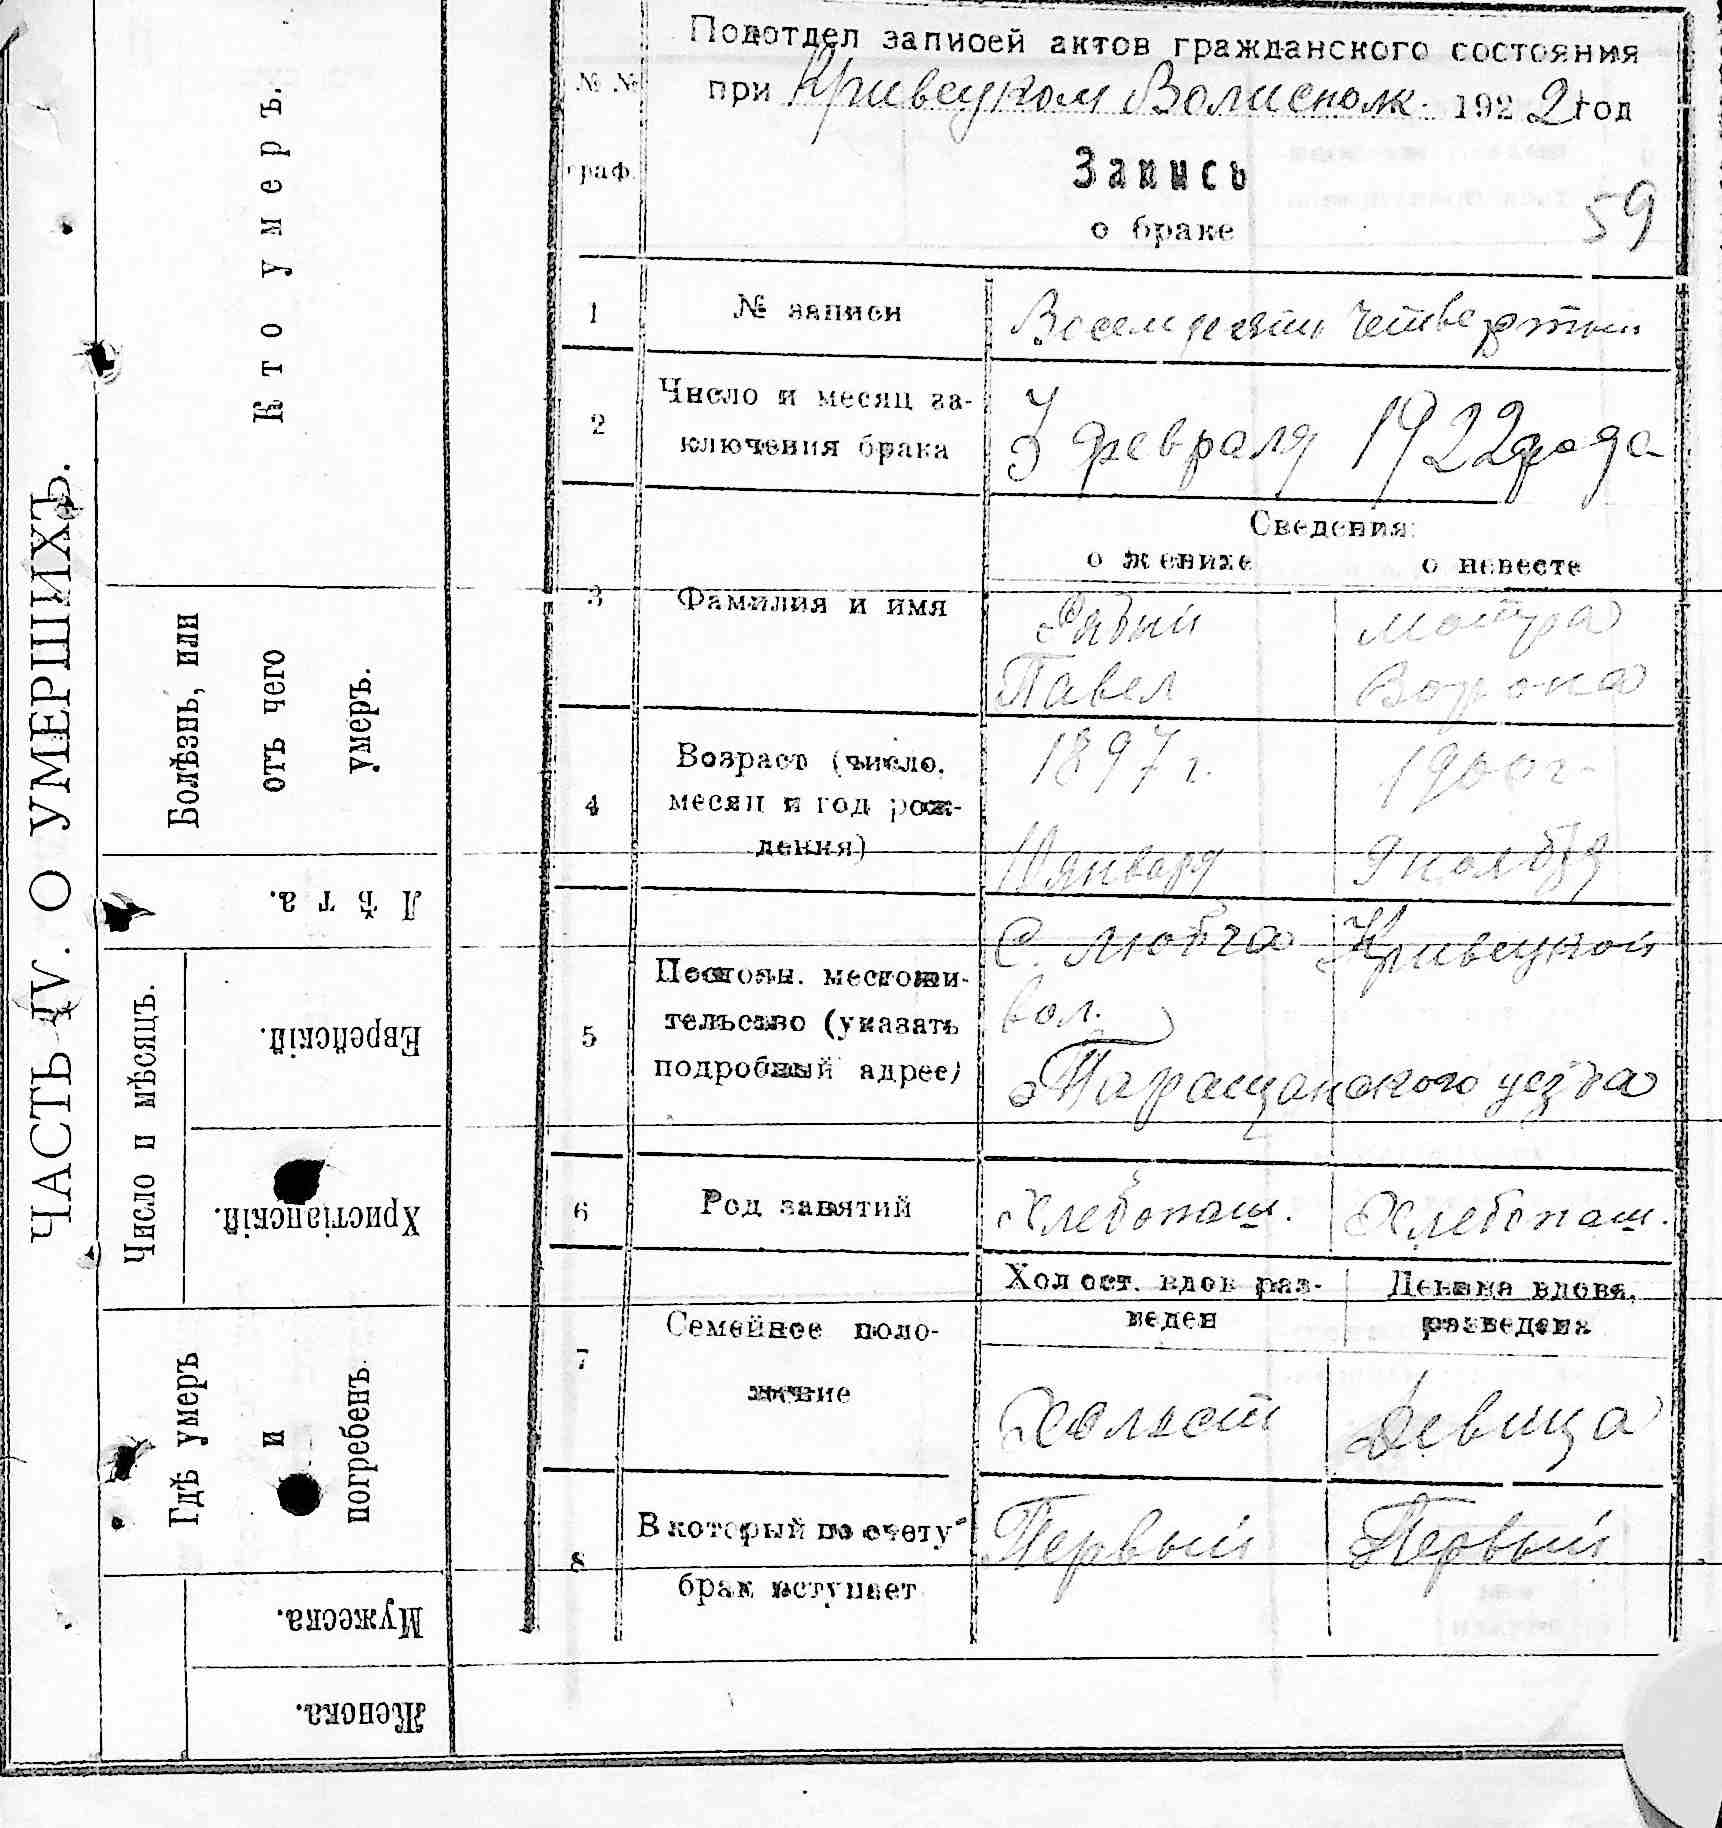 ЧАСТЬ IV. О УМЕРШИХЪ.
Кто умеръ.
Болѣзнь, или
отъ чего
умеръ.
Лѣта.
Число и мѣсяцъ.
Еврейскій.
Христіанскій.
Гдѣ умеръ
и
погребенъ.
Мужеска.
Женска.
Подотдел записей актов гражданского состояния
при Кривецком Волисполк. 1922 год
№№
граф.
Запись
о браке
59
1 № записи Восемдесять четвертый
2 Число и месяц за-
ключения брака
3 февраля 1922 года
Сведения:
о женихе о невесте
3 Фамилия и имя
Рябый Мотра
Павел Ворона
4 Возраст (число,
месяц и год рож-
дения)
1897 г. 1900 г.
10 января 9 ноября
5 Постоян. местожи-
тельство (указать
подробный адрес)
С. Любча Кривецкой
вол.
Таращанского уезда
6 Род занятий Хлебопаш. Хлебопаш.
7 Семейное поло-
жение
Холост. вдов раз-
веден
Девица вдова,
разведена
Холост Девица
8 В который по счету
брак вступает
Первый Первый